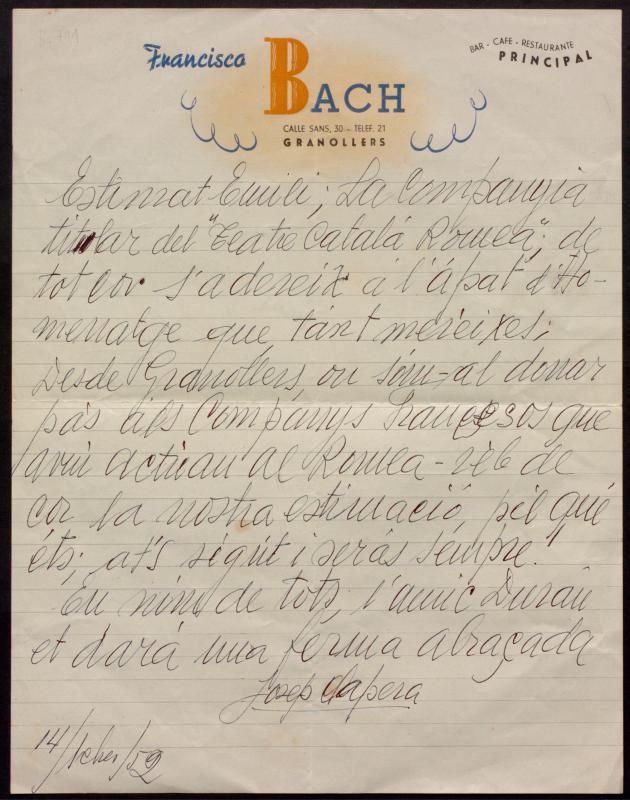 Francisco BACH
BAR - CAFE - RESTAURANTE
PRINCIPAL
CALLE SANS, 30 - TELEF. 21
GRANOLLERS
Estimat Emili; La Companyia
titular del "Teatre Català Romea"; de
tot cor s'adereix á l'ápat d'Ho-
menatge que tánt meréixes;
Desde Granollers, on sóm-al donar
pás als Companys Francesos que
avui actúan al Romea - réb de
cor la nostra estimació, pél qué
éts; ats sigút i serás sémpre!
En nóm de tots, l'amic Durán
et dará una ferma abraçada
Josep Clapera
14/ /52